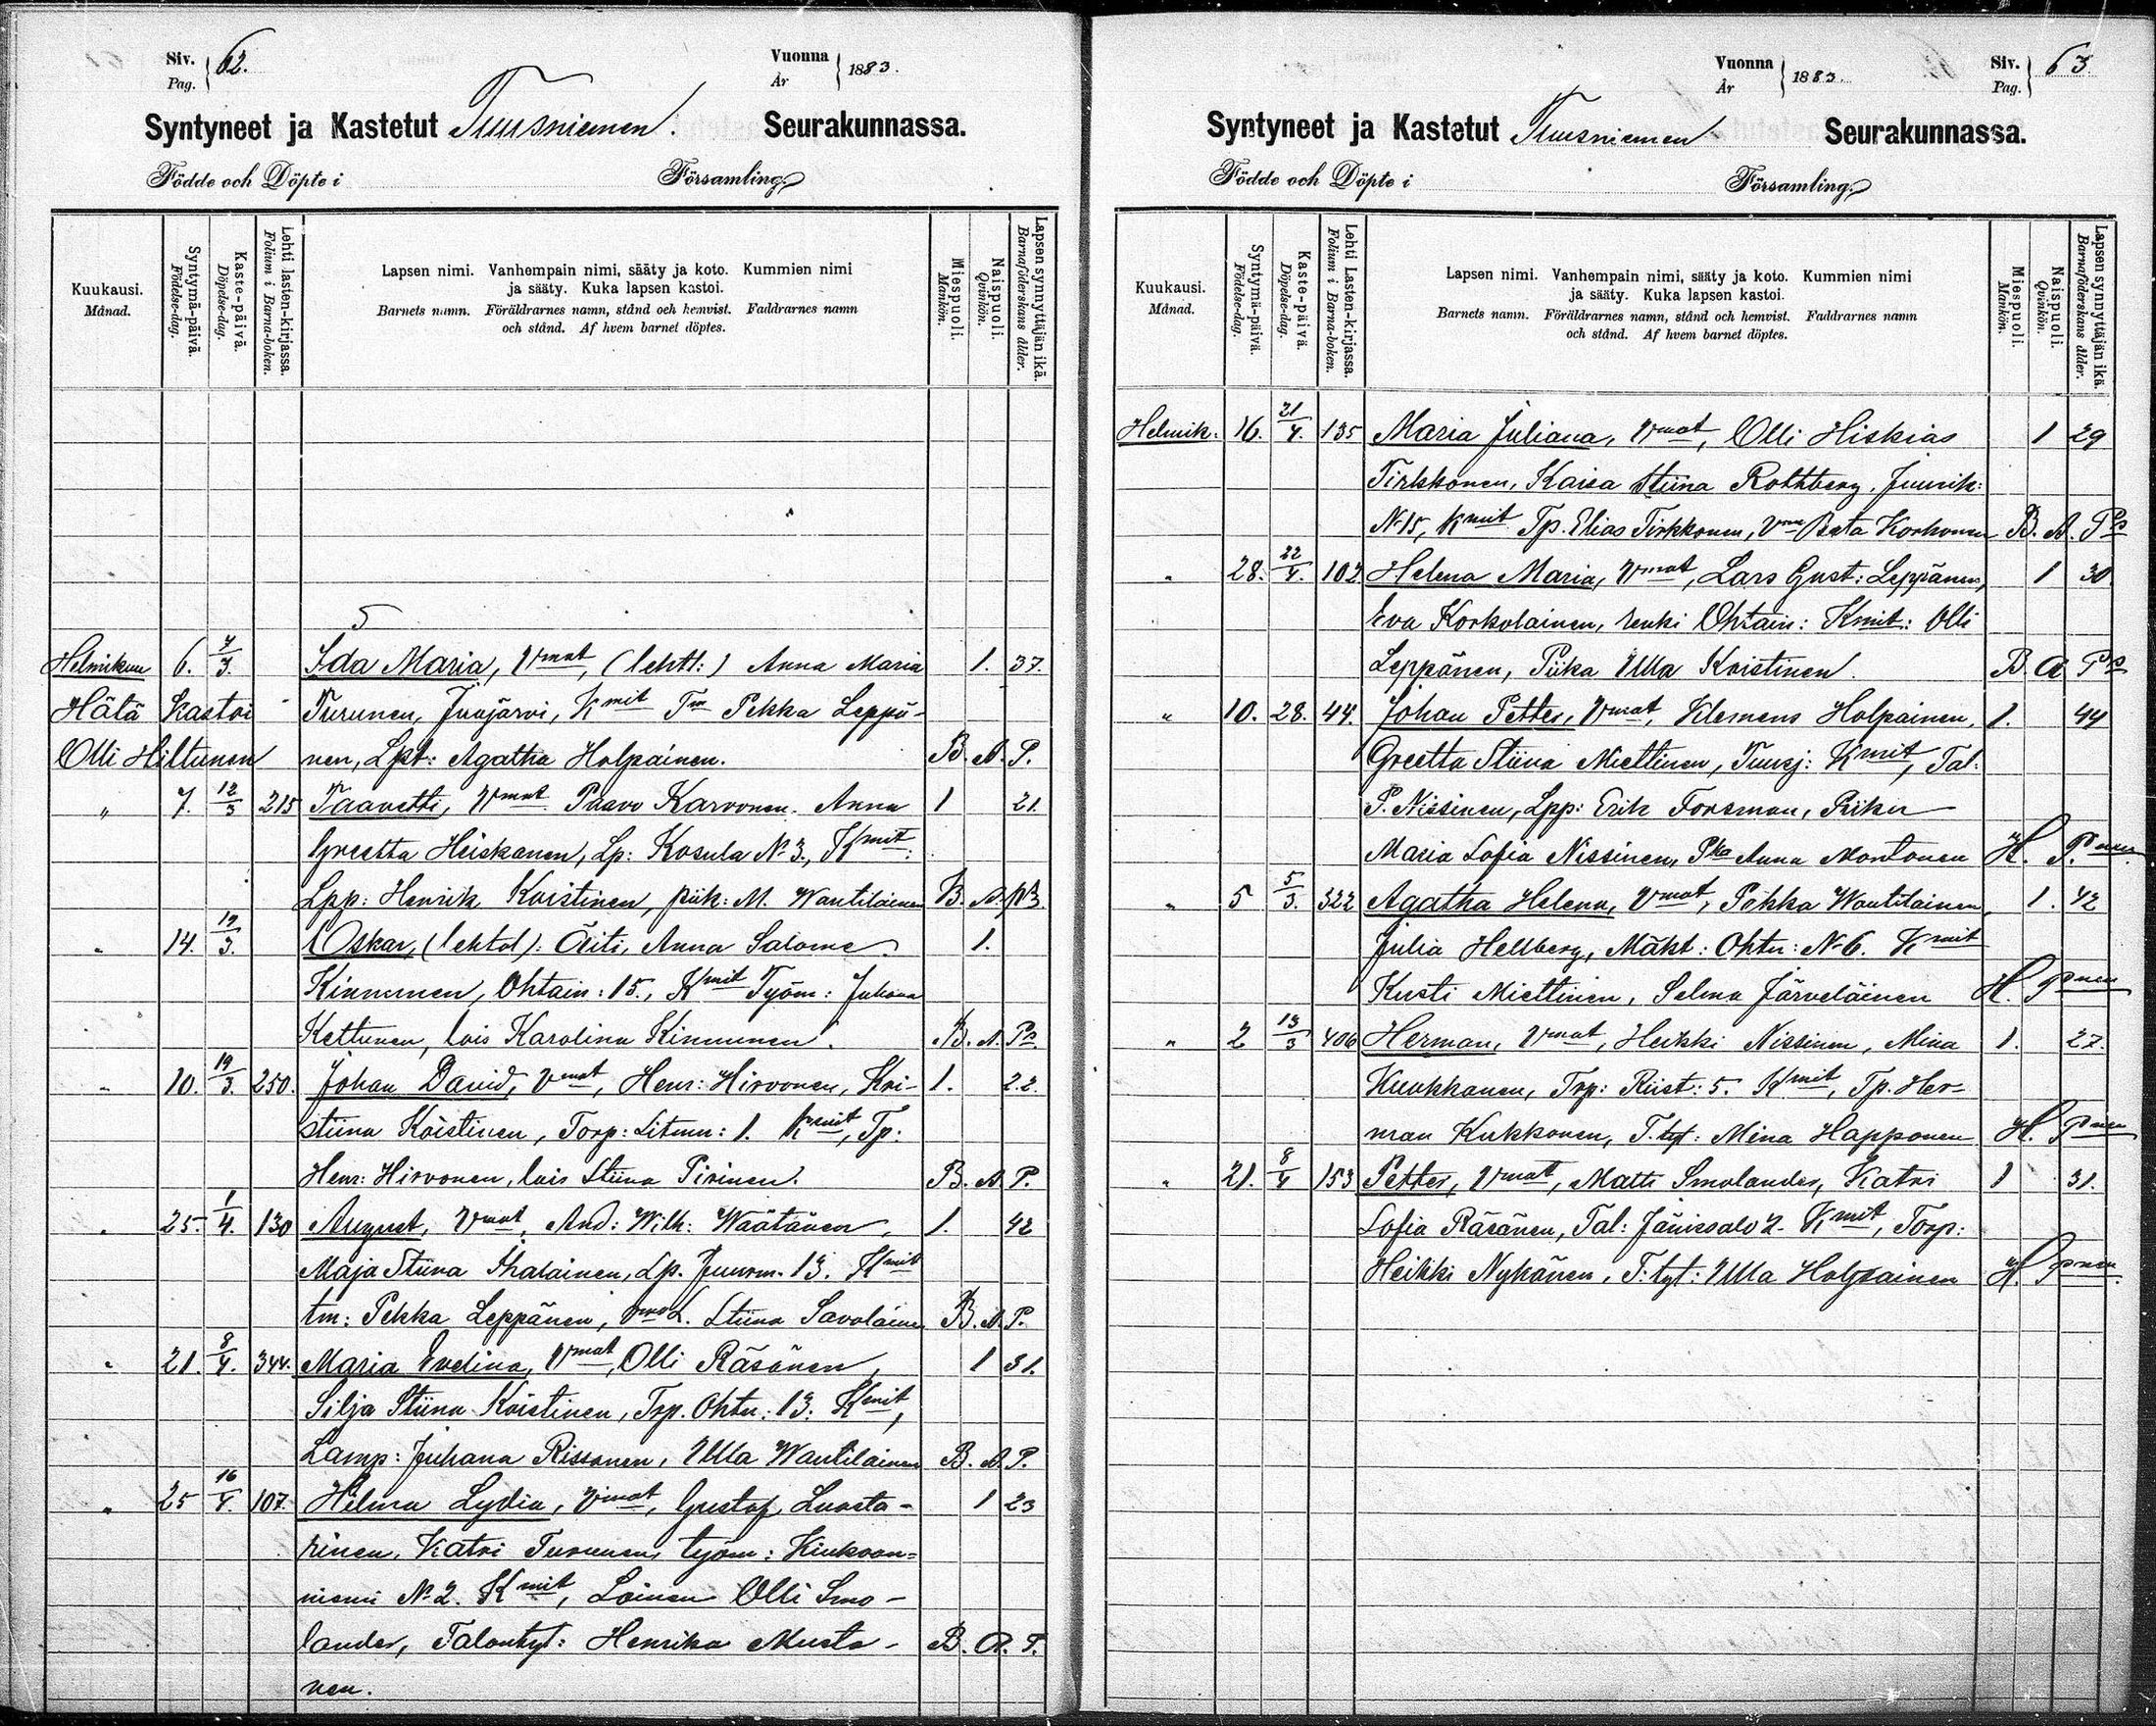 Siv. Pag. 62.
Vuonna År 1883.
Syntyneet ja Kastetut Tuusniemen. Seurakunnassa.
Födde och Döpte i Församling.
Kuukausi. Månad.
Syntymä-päivä. Födelse-dag.
Kaste-päivä. Döpelse-dag.
Lehti lasten-kirjassa. Folium i Barna-boken.
Lapsen nimi. Vanhempain nimi, sääty ja koto. Kummien nimi
ja sääty. Kuka lapsen kastoi.
Barnets namn. Föräldrarnes namn, stånd och hemvist. Faddrarnes namn
och stånd. Af hvem barnet döptes.
Miespuoli. Mankön.
Naispuoli. Qvinkön.
Lapsen synnyttäjän ikä. Barnaföderskans ålder.
5
Helmikuu 6. 4/3. Ida Maria, Vmat, (lehtl:) Anna Maria 1. 37.
Hätä Kastoi Turunen, Juojärvi, Kmit Tm Pekka Leppä-
Olli Hiltunen nen, Lpt: Agatha Holpainen. B. A. P.
" 7. 12/3 215 Taavetti, Vmat Paavo Karvonen. Anna 1 21.
Greetta Heiskanen, Lp: Kosula No 3., Kmit:
Lpp: Henrik Koistinen, piik: M. Wantilainen B. A. P3.
" 14. 19/3. Oskar, (lehtol): Äiti, Anna Salome 1.
Kinnunen, Ohtain: 15., Kmit Työm: Juhana
Kettunen, lois Karolina Kinnunen. B. A. Ps.
" 10. 19/3. 250. Johan David, Vmat, Henr: Hirvonen, Kri- 1. 22.
stiina Koistinen, Torp: Litmn: 1. Kmit, Tp:
Henr: Hirvonen, lois Stiina Pirinen. B. A. P.
" 25. 1/4. 130 August, Vmat, And: Wilh: Wäätänen, 1. 42
Maja Stiina Ihalainen, Lp. Juurm. 13. Kmit
tm: Pekka Leppänen, L. Stiina Savolainen B. A. P.
" 21. 8/4. 344. Maria Evelina, Vmat, Olli Räsänen, 1 31.
Silja Stiina Koistinen, Trp. Ohtn: 13: Kmit,
Lamp: Juhana Rissanen, Ulla Wantilainen B. A. P.
" 25 16/4. 107. Hilma Lydia, Vmat, Gustaf Luosta- 1 23
rinen, Katri Turunen, työm: Kiukoon=
niemi No 2. Kmit, Loinen Olli Smo-
lander, Talontyt: Henrika Musto- B. A. P.
nen.
Vuonna År 1883.
Siv. Pag. 63.
Syntyneet ja Kastetut Tuusniemen Seurakunnassa.
Födde och Döpte i Församling.
Kuukausi. Månad.
Syntymä-päivä. Födelse-dag.
Kaste-päivä. Döpelse-dag.
Lehti Lasten-kirjassa. Folium i Barna-boken.
Lapsen nimi. Vanhempain nimi, sääty ja koto. Kummien nimi
ja sääty. Kuka lapsen kastoi.
Barnets namn. Föräldrarnes namn, stånd och hemvist. Faddrarnes namn
och stånd. Af hvem barnet döptes.
Miespuoli. Mankön.
Naispuoli. Qvinkön.
Lapsen synnyttäjän ikä. Barnaföderskans ålder.
Helmik: 16. 21/4. 135 Maria Juliana, Vmat, Olli Hiskias 1 29
Tirkkonen, Kaisa Stiina Rothberg, Juurik:
No 15, Kmit Tp. Elias Tirkkonen, Vmo Beata Korhonen B. A. Ps
" 28. 22/4. 102. Helena Maria, Vmat, Lars Gust: Leppänen, 1 30
Eva Korkolainen, renki Ohtain: Kmit: Olli
Leppänen, Piika Ulla Koistinen. B. A Ps
" 10. 28. 44. Johan Petter, Vmat, Klemens Holpainen, 1. 44
Greetta Stiina Miettinen, Tuusj: Kmit, Tal:
P. Nissinen, Lpp: Erik Forsman, Piika
Maria Sofia Nissinen, Pka Anna Montonen H. Pnen
" 5 5/3. 322 Agatha Helena, Vmat, Pekka Wantilainen, 1. 42
Julia Hellberg, Mäkt: Ohtn: No 6. Kmit
Kusti Miettinen, Selma Järveläinen H. Pnen
" 2 13/3 406 Herman, Vmat, Heikki Nissinen, Mina 1. 27.
Kuukkanen, Trp: Riist: 5. Kmit, Tp. Her-
man Kukkonen, T. tyt: Mina Happonen H. Pnen
" 21. 8/4 153 Petter, Vmat, Matti Smolander, Katri 1 31.
Sofia Räsänen, Tal: Jänissalo 2. Kmit, Torp:
Heikki Nykänen, T: tyt: Ulla Holpainen H. Pnen.